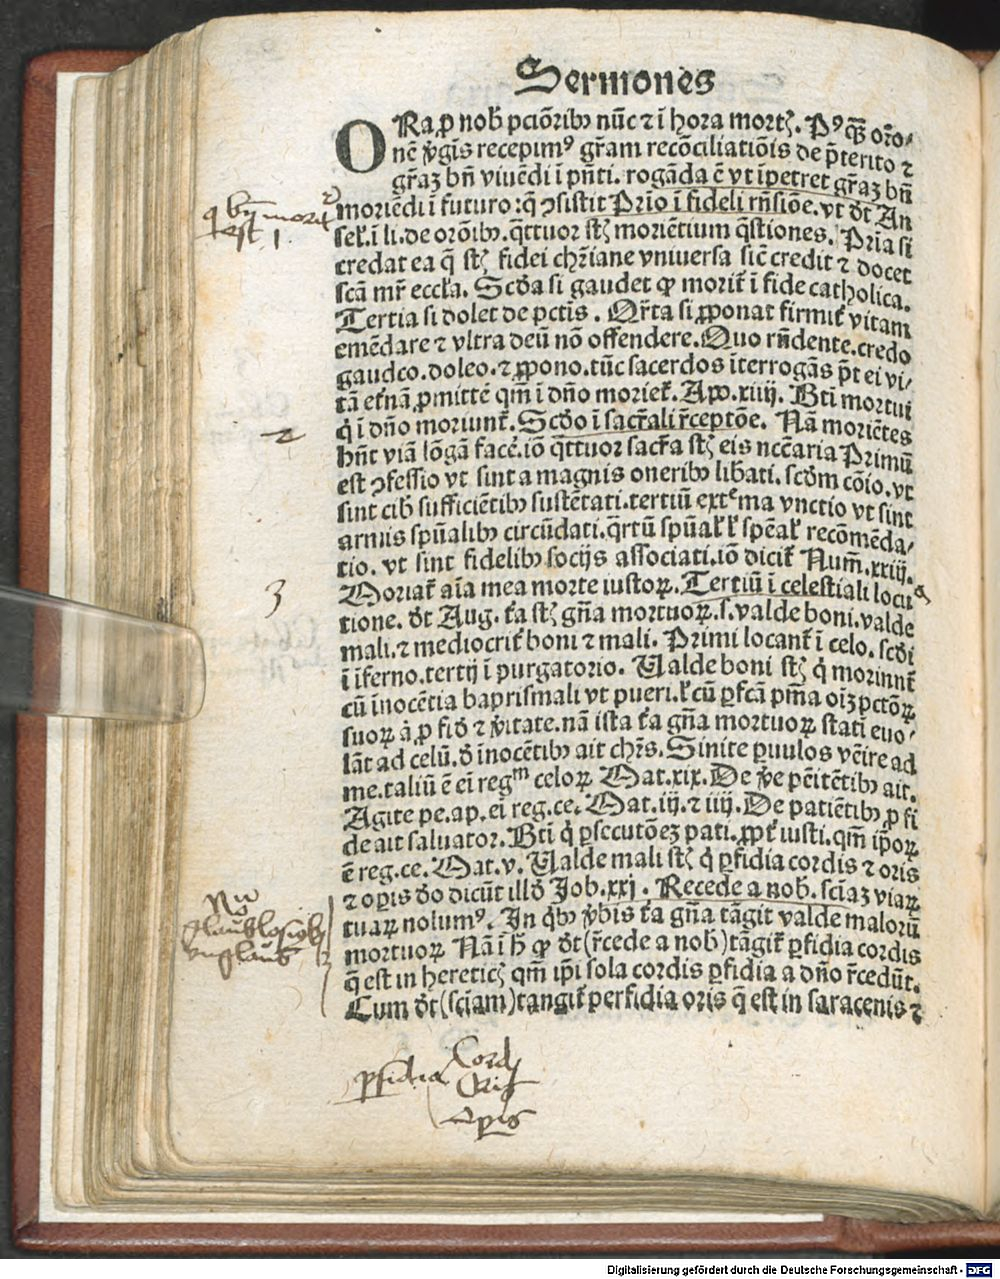 Sermones
ORa ꝓ nob̄ pctōribꝰ nūc ⁊ ī hora mortꝭ. Pꝰqꝫ orō⸗
nē v̄gīs recepimꝰ grām recōciliatiōis de p̄terito ⁊
grāꝫ bn̄ viuēdi ī pn̄ti. rogāda ē vt īpetret grāꝫ bn̄
moriēdi ī futuro: q̄ ꝯsistit Prīo ī fideli rn̄siōe. vt dt̄ An
sel. ī li. de orōibꝰ. q̄ttuor st̄ moriētium q̄stiones. Pria si
credat ea q̄ st̄ fidei chr̄iane vniuersa sic̄ credit ⁊ docet
scā mr̄ eccl̄a. Scd̄a si gaudet ꝙ morit̄ ī fide catholica.
Tertia si dolet de pctīs. Qr̄ta si ꝓponat firmit̄ vitam
emēdare ⁊ vltra deū nō offendere. Quo rn̄dente. credo
gaudeo. doleo. ⁊ ꝓpono. tūc sacerdos īterrogās p̄t ei vi⸗
tā et̄nā ꝓmitte q̄m ī dn̄o moriet̄. Apo. xiiij. Bt̄i mortui
q̄ ī dn̄o moriunt̄. Scd̄o ī sacr̄ali r̄ceptōe. Nā moriētes
hn̄t viā lōgā face͛. iō q̄ttuor sacr̄a st̄ eis ncc̄aria Primū
est ꝯfessio vt sint a magnis oneribꝰ lib̄ati. scd̄m cōio. vt
sint cib̄ sufficiētibꝰ sustētati. tertiū extᵉma vnctio vt sint
armis spūalibꝰ circūdati. q̄rtū spūal̄ l̄ spēal̄ recōmēda⸗
tio. vt sint fidelibꝰ socijs associati. iō dicit̄ Num̄. xxiij.
Moriat̄ aīa mea morte iustoꝝ. Tertiū ī celestiali locā
tione. dt̄ Aug. t̄a st̄ gn̄a mortuoꝝ. s. valde boni. valde
mali. ⁊ mediocrit̄ boni ⁊ mali. Primi locant̄ ī celo. scd̄i
ī īferno. tertij ī purgatorio. Ualde boni st̄ q̄ moriunt̄
cū īnocētia baptismali vt pueri. l̄ cū ꝑfcā pn̄ia oīꝫ pctōꝝ
suoꝝ ⁊ ꝓ fid̄ ⁊ v̄itate. nā ista t̄a gn̄a mortuoꝝ statī euo⸗
lāt ad celū. d̄ īnocētibꝰ ait chr̄s. Sinite ꝑuulos vēire ad
me. taliū ē eī regᵐ celoꝝ Mat. xix. De v̄e pēitētibꝰ ait.
Agite pe. ap. eī reg. ce. Mat. iij. ⁊ iiij. De patiētibꝰ ꝓ fi
de ait saluator. Bt̄i q̄ ꝑsecutōeꝫ pati. ꝓpt̄ iusti. qm̄ ip̄oꝝ
ē reg. ce. Mat. v. Ualde mali st̄ q̄ ꝑfidia cordis ⁊ oris
⁊ oꝑis d̄o dicūt illd̄ Job. xxj. Recede a nob̄. sciaꝫ viaꝝ
tuaꝝ nolumꝰ. In q̄bꝰ v̄bis t̄a gn̄a tāgit valde maloꝝ
mortuoꝝ Nā ī h̄ ꝙ dt̄ (r̄cede a nob̄) tāgit̄ ꝑfidia cordis
q̄ est in hereticꝭ qm̄ ip̄i sola cordis ꝑfidia a dn̄o r̄cedūt.
Cum dt̄ (sciam) tangit̄ perfidia oris q̄ est in saracenis ⁊
2
3
ꝑfidia
Cord
Oris
Oꝑis
Digitalisierung gefördert durch die Deutsche Forschungsgemeinschaft - DFG